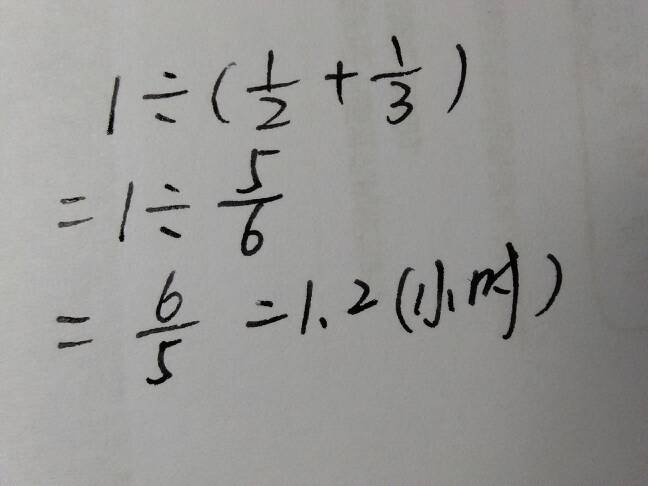 1÷(1/2+1/3)
=1÷5/6
=6/5=1.2(小时)